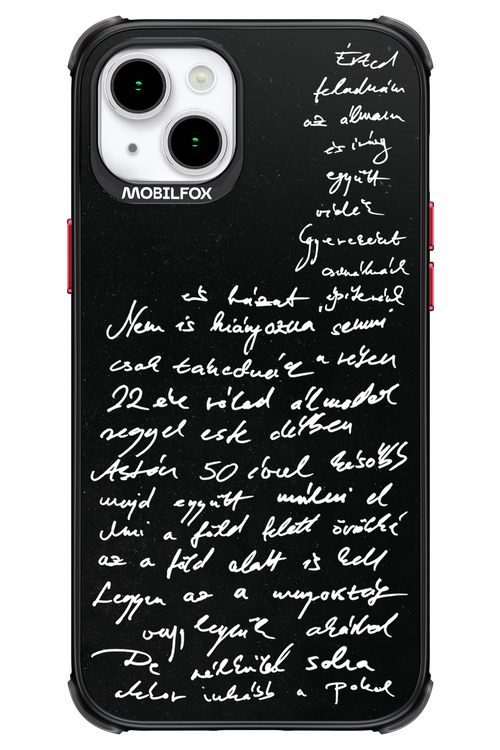 MOBILFOX
Érted
feladnám
az álmaim
és irány
együtt
vidék
Gyereket
csinálnánk
és házat építenénk
Nem is hiányozna semmi
csak tekednék a
22 éve rólad álmodok
reggel este délben
Aztán 50 évvel később
majd együtt múlni el
Ami a föld felett örökké
az a föld alatt is kell
Legyen az a mennyország
vagy legyünk akárhol
De nélküled soha
akkor inkább a Pokol